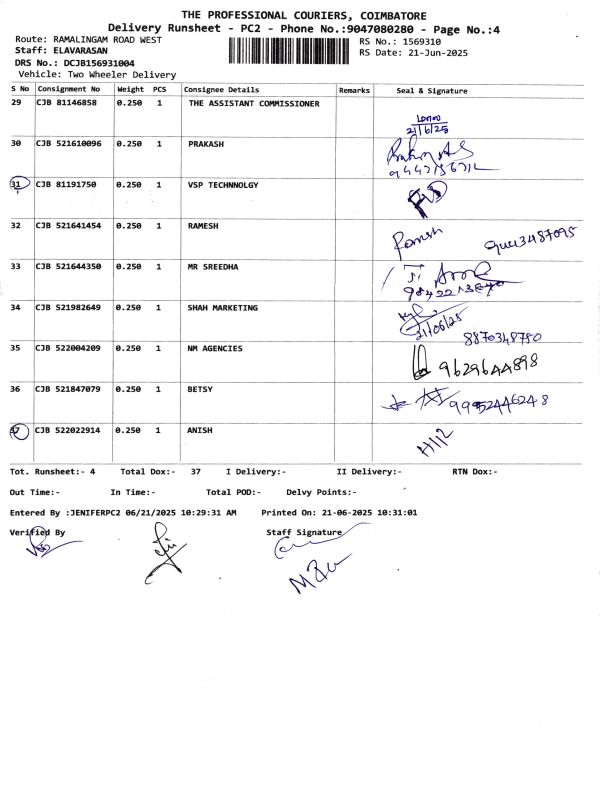 THE PROFESSIONAL COURIERS, COIMBATORE
Delivery Runsheet - PC2 - Phone No.:9047080280 - Page No.:4
Route: RAMALINGAM ROAD WEST
RS No.: 1569310
Staff: ELAVARASAN
RS Date: 21-Jun-2025
DRS No.: DCJB156931004
Vehicle: Two Wheeler Delivery
S No Consignment No Weight PCS Consignee Details Remarks Seal & Signature
29 CJB 81146858 0.250 1 THE ASSISTANT COMMISSIONER
21/6/25
30 CJB 521610096 0.250 1 PRAKASH
31 CJB 81191750 0.250 1 VSP TECHNNOLGY
32 CJB 521641454 0.250 1 RAMESH Ramesh
33 CJB 521644350 0.250 1 MR SREEDHA
34 CJB 521982649 0.250 1 SHAH MARKETING
21/06/25
8870348750
35 CJB 522004209 0.250 1 NM AGENCIES 9629644898
36 CJB 521847079 0.250 1 BETSY
37 CJB 522022914 0.250 1 ANISH
H112
Tot. Runsheet:- 4 Total Dox:- 37 I Delivery:- II Delivery:- RTN Dox:-
Out Time:- In Time:- Total POD:- Delvy Points:-
Entered By :JENIFERPC2 06/21/2025 10:29:31 AM Printed On: 21-06-2025 10:31:01
Verified By Staff Signature